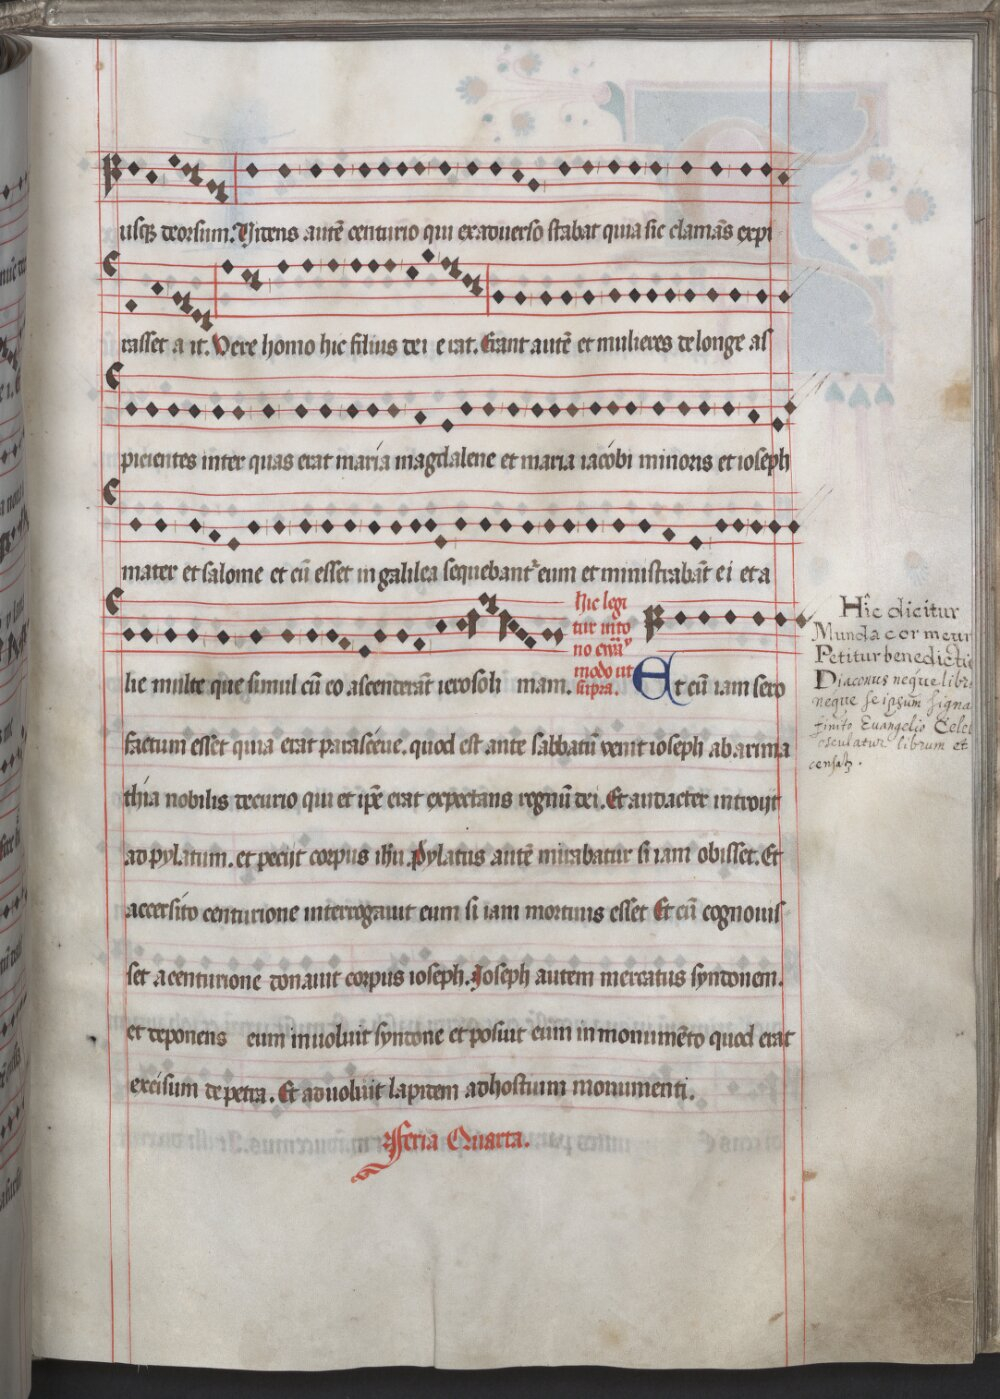 usq; deorsum. Videns autē centurio qui exaduerso stabat quia sic clamās expi
rasset a it. Vere homo hic filius dei e rat. Erant autē et mulieres de longe as
picientes inter quas erat maria magdalene et maria iacobi minoris et ioseph
mater et salome et cū esset in galilea sequebant eum et ministrabāt ei et a
lie multe que simul cū eo ascenderāt ierosoli mam.
Hic legi
tur in to
no euā
modo ut
supra.
Et cū iam sero
factum esset quia erat parasceue. quod est ante sabbatū venit ioseph ab arima
thia nobilis decurio qui et ipē erat expectans regnū dei. Et audacter introijt
ad pylatum. et pecijt corpus ihū. Pylatus autē mirabatur si iam obisset. Et
accersito centurione interrogauit eum si iam mortuus esset Et cū cognouis
set a centurione donauit corpus ioseph. Joseph autem mercatus syndonem.
et deponens eum inuoluit syndone et posuit eum in monumēto quod erat
excisum de petra. Et aduoluit lapidem ad hostium monumenti.
Feria Quarta.
Hic dicitur
Munda cor meum
Petitur benedictio
Diaconus neque libr
neque se ipsum signa
finito Euangelio Cele
osculatur librum et